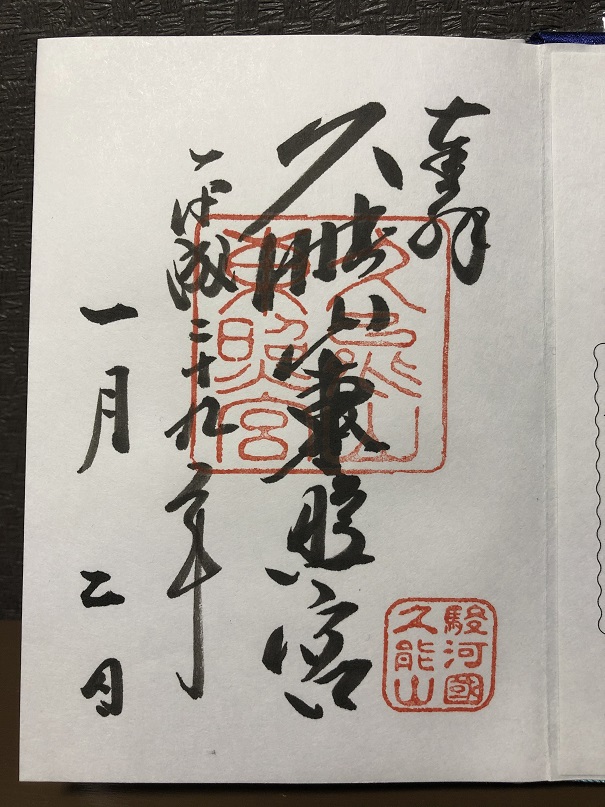 奉拝
久能山東照宮
平成二十九年
一月二日
久能山
東照宮
駿河國
久能山